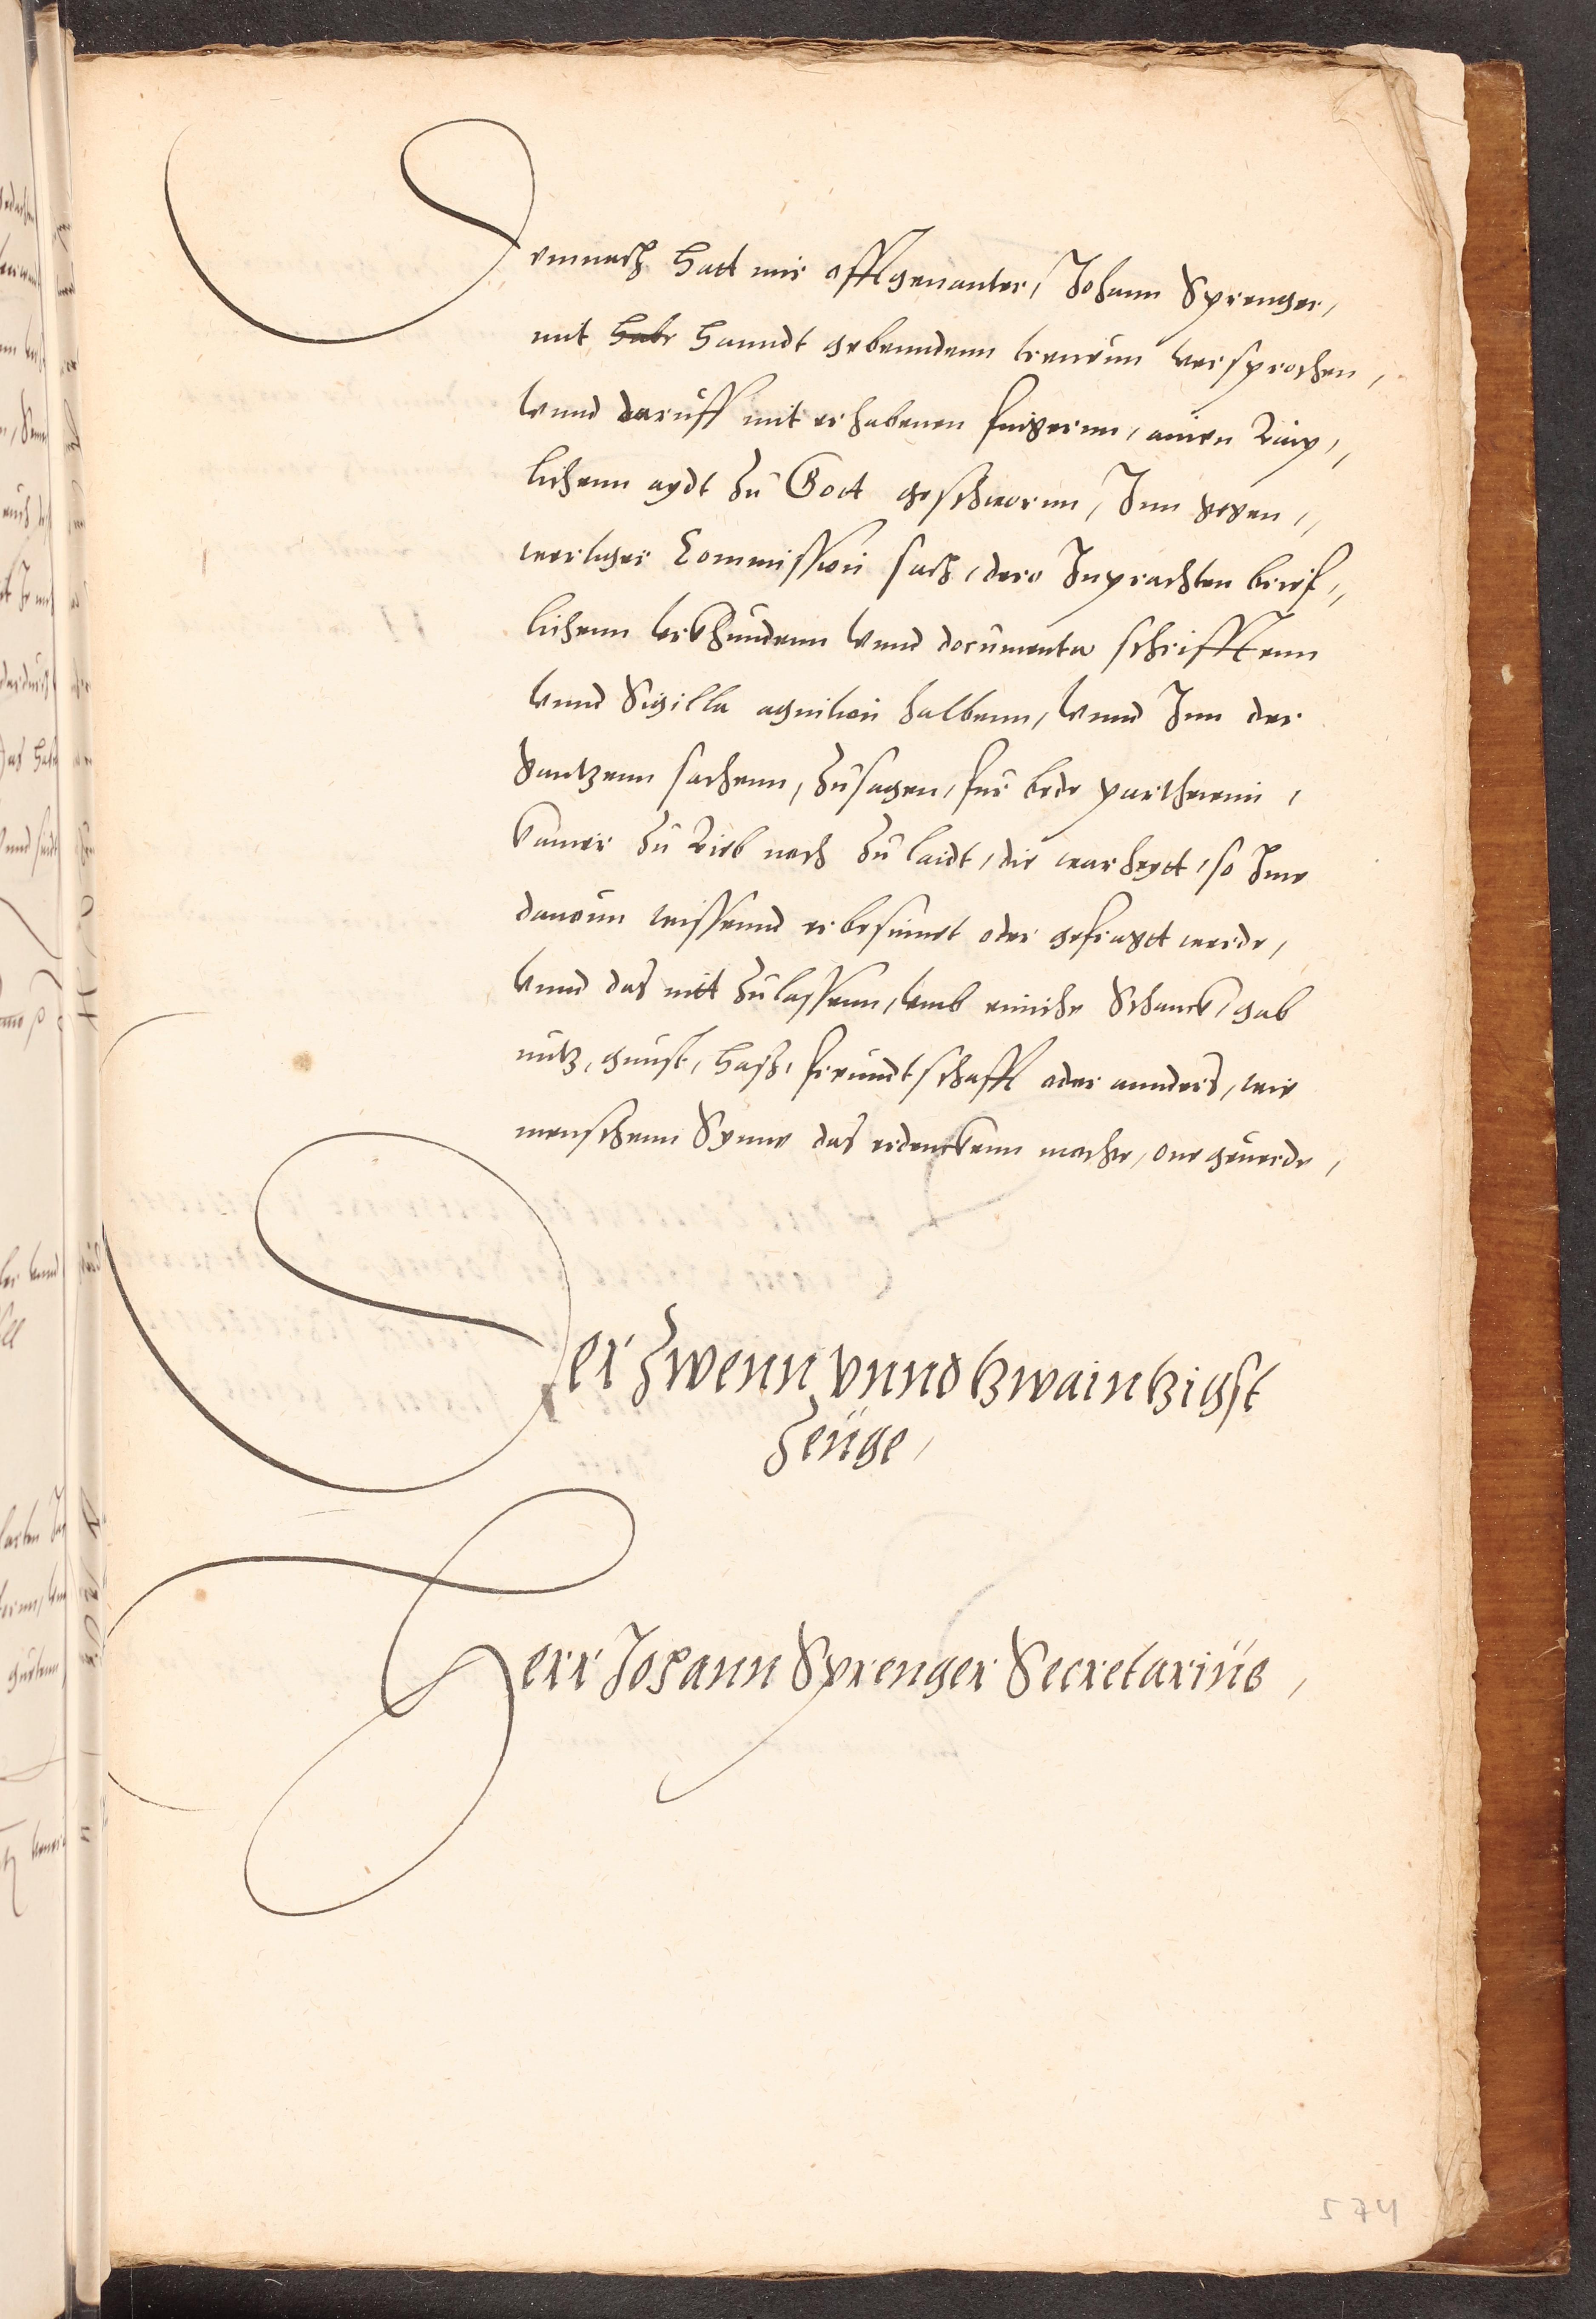 Demnach hatt mir offtgenanter, Johann Sprenger,
mit habe hanndt gebenndenn trewen versprochen,
vnnd daruff mit erhabenen fingernn, ainen Leip,,
lichenn aydt zu Gott geschworn, Inn gegen,,
wertiger Commission sach, dero Inprachten brief,,
lichenn vrkhundenn vnnd documenta schrifftenn
vnnd Sigilla agnition halbenn, vnnd Inn der
gantzenn sachenn, zusagen, fur bede partheien,
kainer zu Lieb noch zu laidt, die warheytt, so Ime
dauon wissennd er besinnet oder gefragtt werde,
vnnd das nitt zulassenn, vmb einiche Schanck, gab
nutz, gunst, hass, freundtschafft oder annders, wie
menschenn Synne das erdenckenn mochte, one geuerde,
Der Zwenn vnnd tzwaintzigst
Zeuge,
Herr Johann Sprenger Secretarius,
574